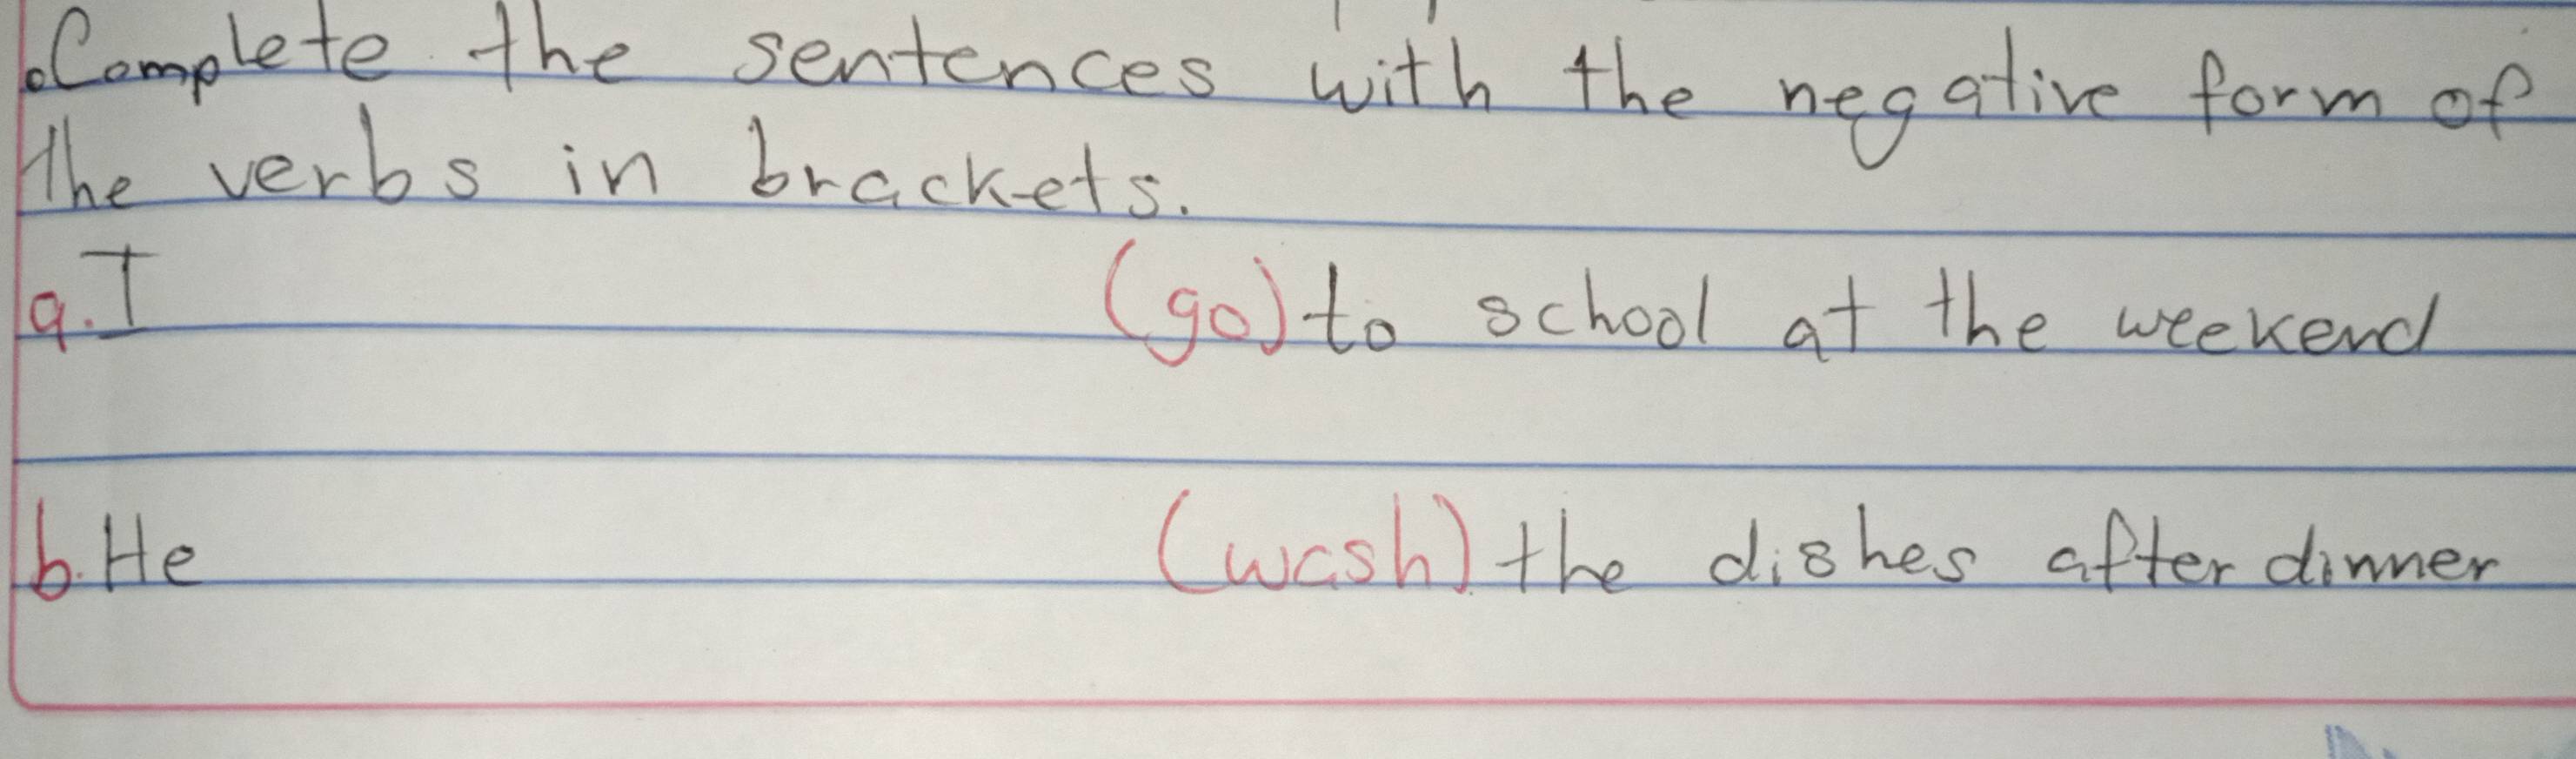 Complete the sentences with the negative form of
the verbs in brackets.
a. I (go) to school at the weekend
b. He (wash) the dishes after dinner